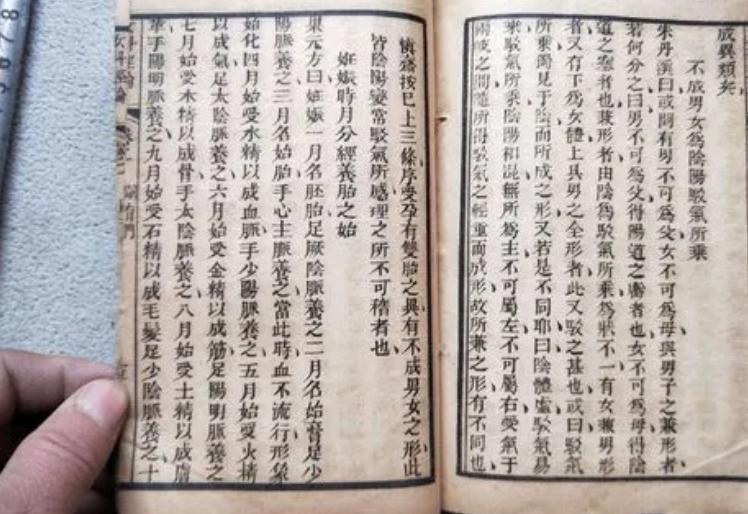 成異類矣
不成男女爲陰陽駁氣所乘
朱丹溪曰或問有男不可爲父女不可爲母與男子之兼形者
若何分之曰男不可爲父得陽道之虧者也女不可爲母得陰
道之塞者也兼形者由陰爲駁氣所乘爲狀不一有女兼男形
者又有下爲女體上具男之全形者此又駁之甚也或曰駁氣
所乘獨見于陰而所成之形又若是不同耶曰陰體虛駁氣易
乘駁氣所乘陰陽和混無所爲主不可屬左不可屬右受氣于
兩歧之間隨所得駁氣之輕重而成形故所兼之形有不同也
慎齋按已上三條序受孕有雙胎之異有不成男女之形此
皆陰陽變常駁氣所感理之所不可稽者也
妊娠時月分經養胎之始
巢元方曰妊娠一月名胚胎足厥陰脈養之二月名始膏足少
陽脈養之三月名始胎手心主脈養之當此時血不流行形象
始化四月始受水精以成血脈手少陽脈養之五月始受火精
以成氣足太陰脈養之六月始受金精以成筋足陽明脈養之
七月始受木精以成骨手太陰脈養之八月始受土精以成膚
革手陽明脈養之九月始受石精以成毛髮足少陰脈養之十
女科經綸